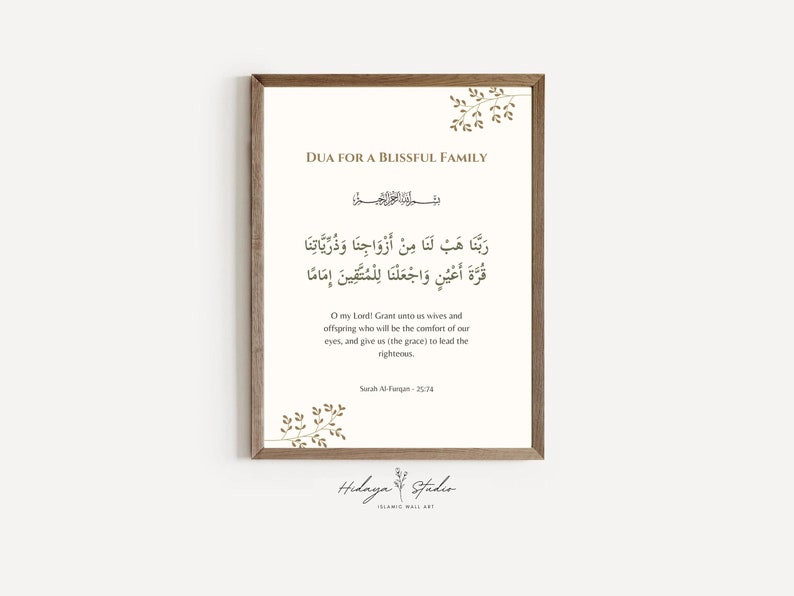 Dua for a Blissful Family
بسم الله الرحمن الرحيم
رَبَّنَا هَبْ لَنَا مِنْ أَزْوَاجِنَا وَذُرِّيَّاتِنَا
قُرَّةَ أَعْيُنٍ وَاجْعَلْنَا لِلْمُتَّقِينَ إِمَامًا
O my Lord! Grant unto us wives and
offspring who will be the comfort of our
eyes, and give us (the grace) to lead the
righteous.
Surah Al-Furqan - 25:74
Hidaya Studio
ISLAMIC WALL ART